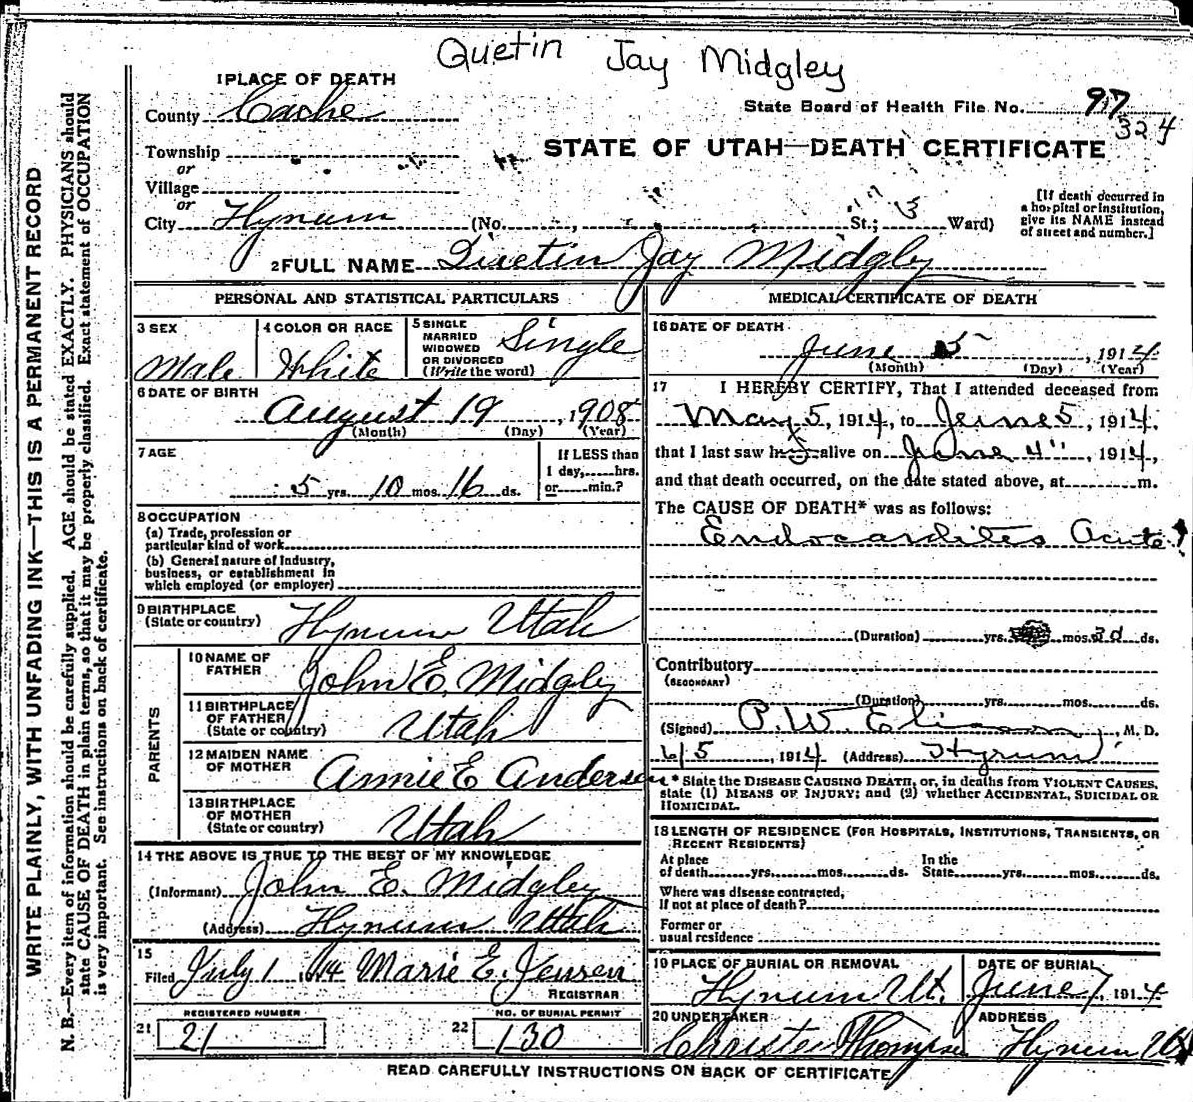 Quetin Jay Midgley
1 PLACE OF DEATH
County Cache
State Board of Health File No. 97
324
Township
or
Village
or
STATE OF UTAH—DEATH CERTIFICATE
City Hyrum (No. , St.; 3 Ward)
[If death occurred in a hospital or institution, give its NAME instead of street and number.]
2 FULL NAME Quetin Jay Midgley
PERSONAL AND STATISTICAL PARTICULARS
3 SEX
Male
4 COLOR OR RACE
White
5 SINGLE
MARRIED
WIDOWED
OR DIVORCED
(Write the word)
Single
6 DATE OF BIRTH
August 19, 1908
(Month) (Day) (Year)
7 AGE
5 yrs. 10 mos. 16 ds.
If LESS than
1 day,......hrs.
or......min.?
8 OCCUPATION
(a) Trade, profession or
particular kind of work
(b) General nature of Industry,
business, or establishment in
which employed (or employer)
9 BIRTHPLACE
(State or country)
Hyrum Utah
PARENTS
10 NAME OF
FATHER
John E. Midgley
11 BIRTHPLACE
OF FATHER
(State or country)
Utah
12 MAIDEN NAME
OF MOTHER
Annie E Andersen
13 BIRTHPLACE
OF MOTHER
(State or country)
Utah
14 THE ABOVE IS TRUE TO THE BEST OF MY KNOWLEDGE
(Informant) John E. Midgley
(Address) Hyrum Utah
15
Filed July 1 1914 Marie E. Jensen
REGISTRAR
REGISTERED NUMBER
21 21
NO. OF BURIAL PERMIT
22 130
MEDICAL CERTIFICATE OF DEATH
16 DATE OF DEATH
June 5, 1914
(Month) (Day) (Year)
17 I HEREBY CERTIFY, That I attended deceased from
May 5, 1914, to June 5, 1914,
that I last saw h alive on June 4", 1914,
and that death occurred, on the date stated above, at......m.
The CAUSE OF DEATH* was as follows:
Endocarditis Acute
(Duration) yrs. mos. 3d ds.
Contributory
(SECONDARY)
(Duration) yrs. mos. ds.
(Signed) P. W. , M. D.
6/5, 1914 (Address) Hyrum
* State the DISEASE CAUSING DEATH, or, in deaths from VIOLENT CAUSES,
state (1) MEANS OF INJURY; and (2) whether ACCIDENTAL, SUICIDAL OR
HOMICIDAL.
18 LENGTH OF RESIDENCE (FOR HOSPITALS, INSTITUTIONS, TRANSIENTS, OR
RECENT RESIDENTS)
At place
of death......yrs......mos......ds.
In the
State......yrs......mos......ds.
Where was disease contracted,
If not at place of death?
Former or
usual residence
19 PLACE OF BURIAL OR REMOVAL
Hyrum Ut.
DATE OF BURIAL
June 7, 1914
20 UNDERTAKER
Christen Thompson
ADDRESS
Hyrum Ut
READ CAREFULLY INSTRUCTIONS ON BACK OF CERTIFICATE
WRITE PLAINLY, WITH UNFADING INK—THIS IS A PERMANENT RECORD
N. B.—Every item of information should be carefully supplied. AGE should be stated EXACTLY. PHYSICIANS should
state CAUSE OF DEATH in plain terms, so that it may be properly classified. Exact statement of OCCUPATION
is very important. See instructions on back of certificate.